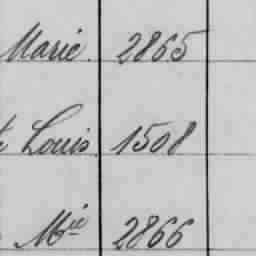 Marie. 2865
Louis 1508
Mie 2866